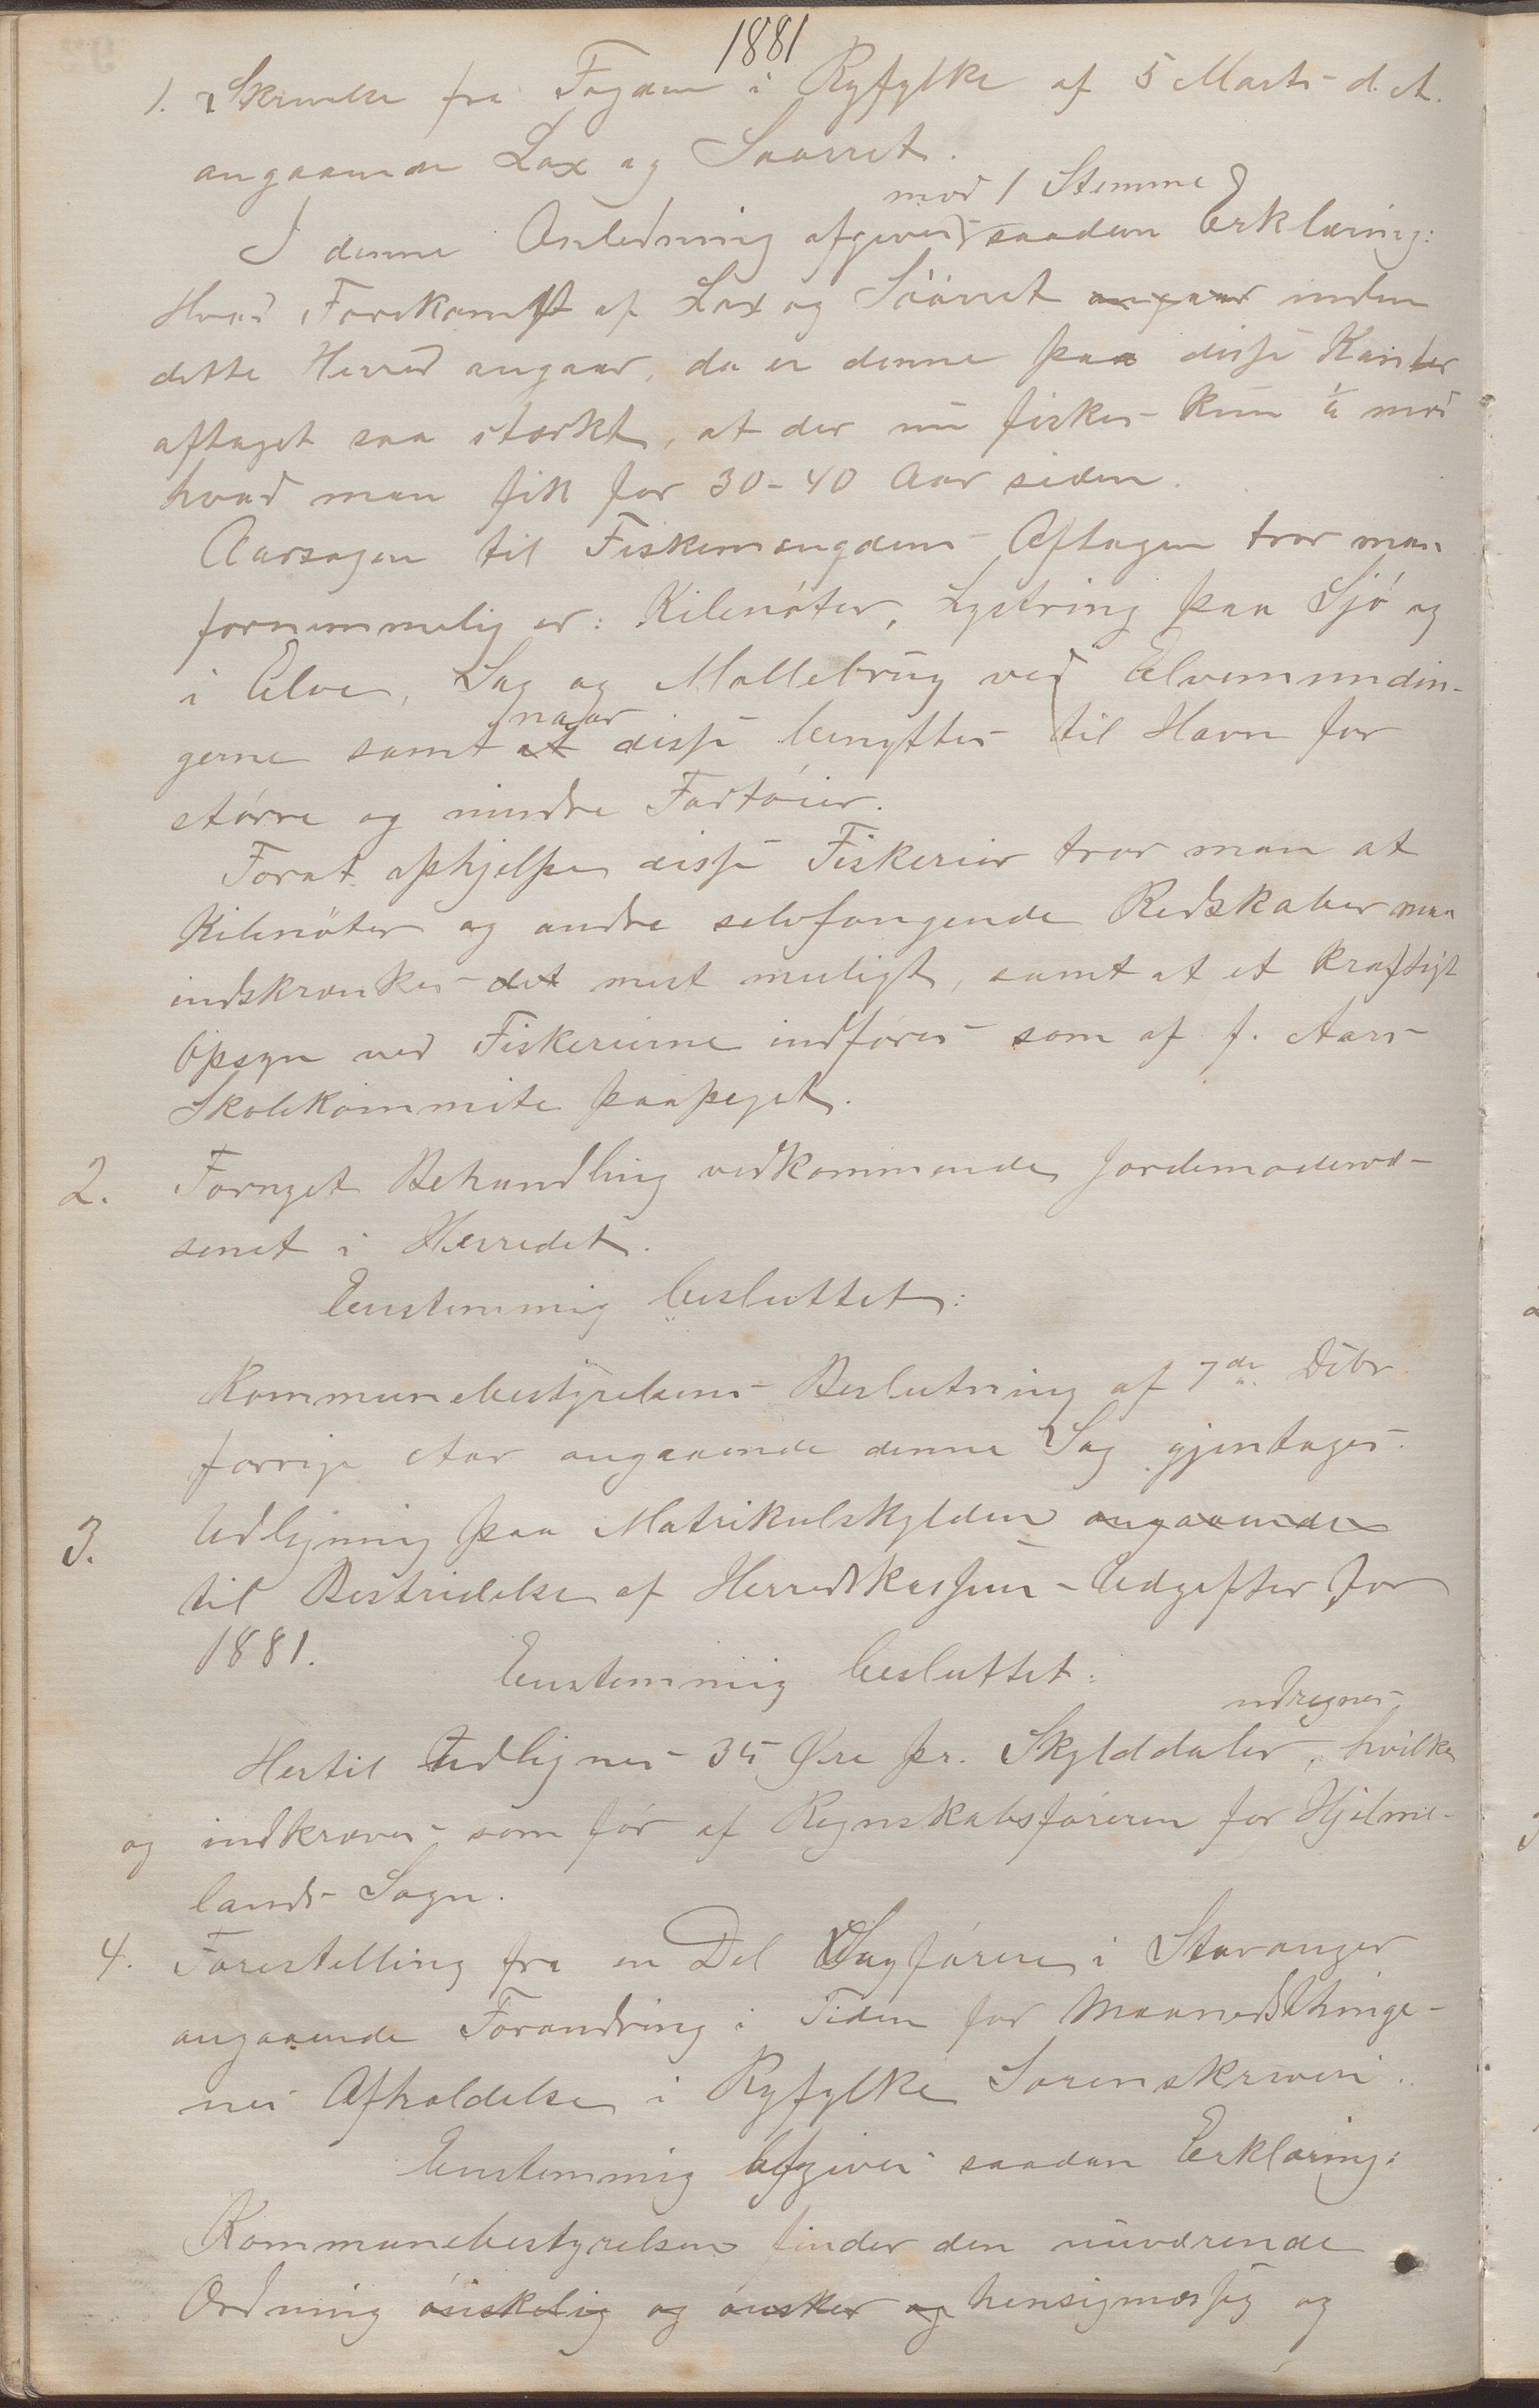 1881
1. Skrivelse fra Fogden i Ryfylke af 5 Marts d. A.
angaaende Lax og Søørret.
mod 1 Stemme
I denne Anledning afgives saadan Erklæring:
Hvad Forekomst af Lax og Søørret angaar inden
dette Herred angaar, da er denne paa disse Kanter
aftaget saa stærkt, at der nu fiskes kun mod
hvad man fik for 30-40 Aar siden.
Aarsagen til Fiskemængdens Aftagen tror man
fornemmelig er: Kilenøter, Lystring paa Sjø og
i Elve, Sag og Møllebrug ved Elvemundin-
naar
gerne samt at disse benyttes til Havn for
større og mindre Fartøier.
Forat ophjelpe disse Fiskerier tror man at
Kilenøter og andre selvfangende Redskaber maa
indskrænkes det mest muligt, samt at et kraftigt
Opsyn ved Fiskerierne indføres som af f. Aars
Skolekommite paapeget.
2. Fornyet Behandling vedkommende Jordemodervæ-
senet i Herredet.
Enstemmig besluttet:
Kommunebestyrelsens Beslutning af 7de Dcbr.
forrige Aar angaaende denne Sag gjentages.
3. Udligning paa Matrikulskylden angaaende
til Bestridelse af Herredskassens Udgifter for
1881.
Enstemmig besluttet:
udregnes
Hertil udlignes 35 Øre pr. Skylddaler, hvilke
og indkræves som før af Regnskabsføreren for Hjelme-
lands Sogn.
4. Forestilling fra en Del Sagførere i Stavanger
angaaende Forandring i Tiden for Maanedsthinge-
nes Afholdelse i Ryfylke Sorenskriveri.
Enstemmig afgives saadan Erklæring:
Kommunebestyrelsen finder den nuværende
Ordning ønskelig og ønsker og hensigmæssig og